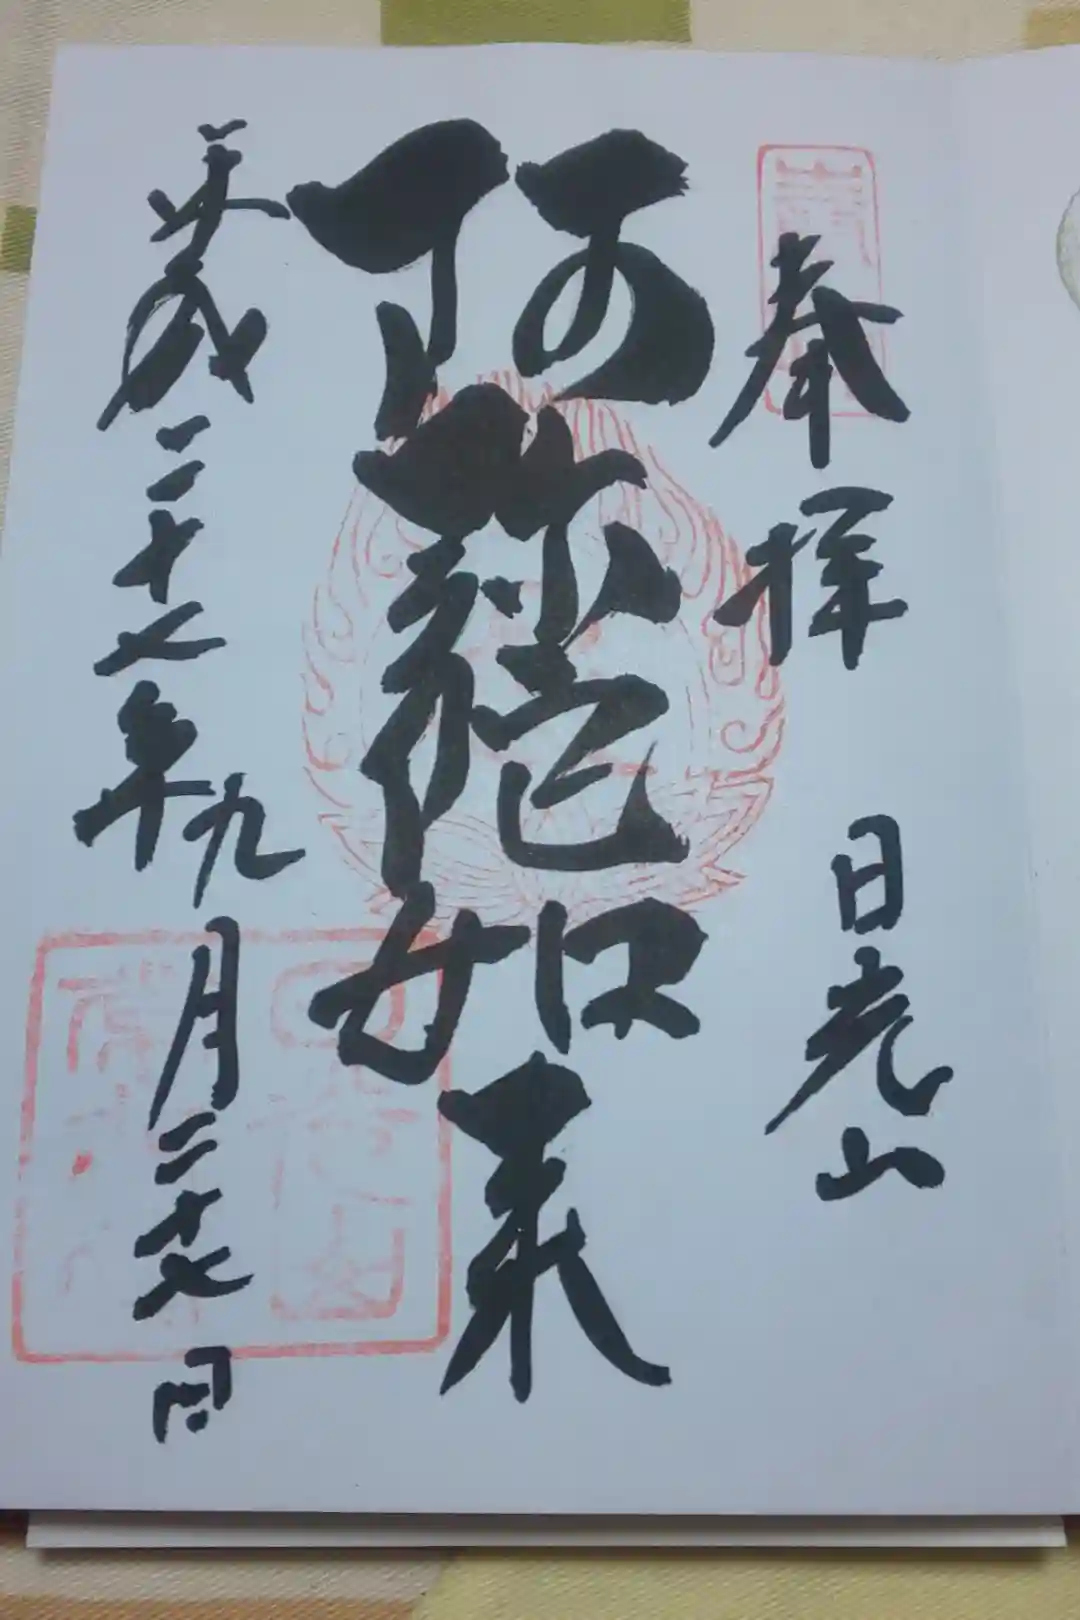 奉拝　日光山
阿弥陀如来
平成二十七年九月二十七日